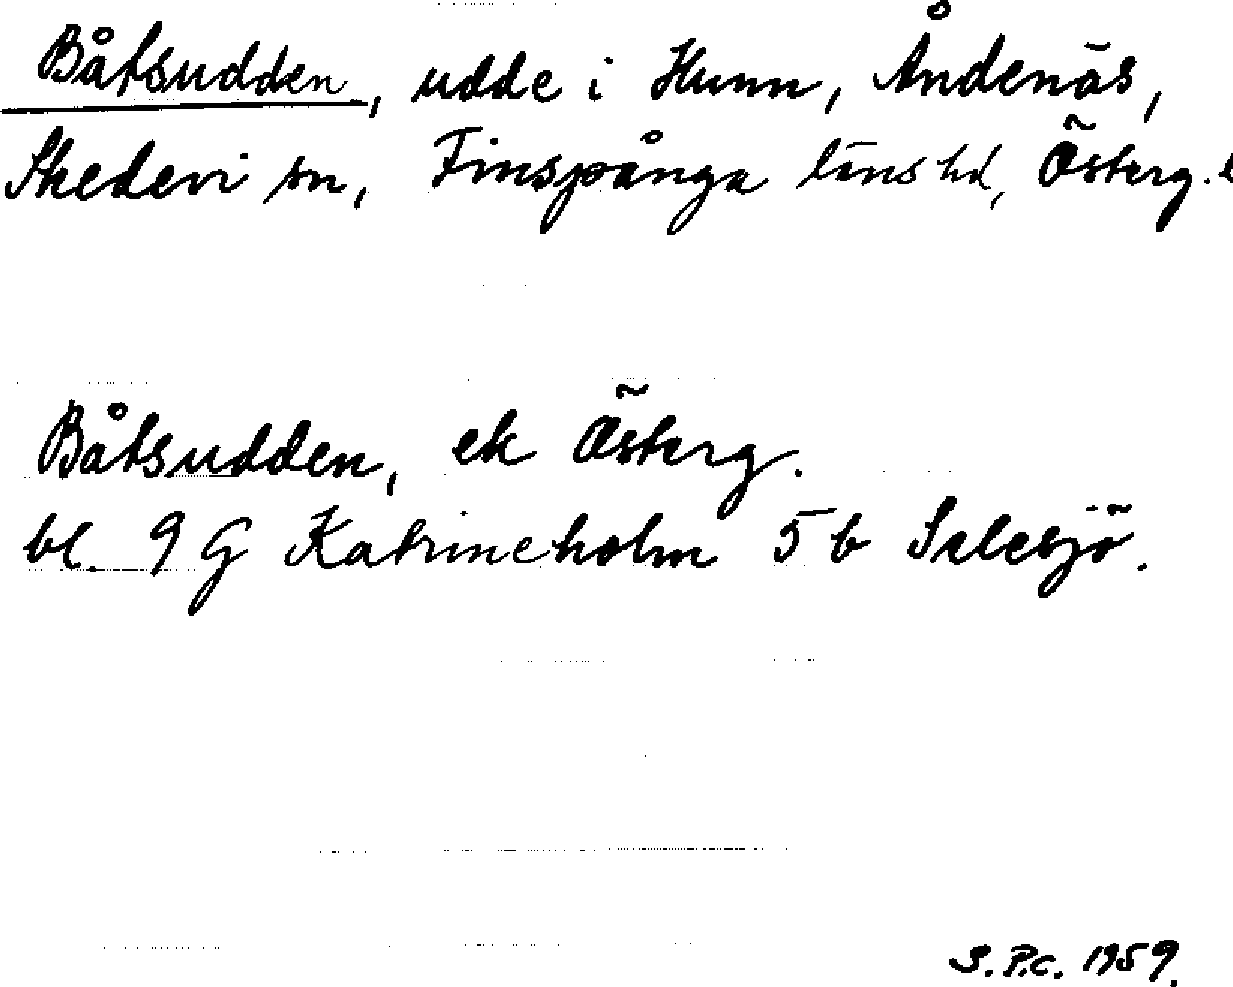 Båtsudden, udde i Hunn, Åndenäs,
Skedevi sn, Finspånga läns hd, Österg. l
Båtsudden, ek Österg.
bl. 9 G Katrineholm 5 b Salesjö.
S.P.C. 1959.